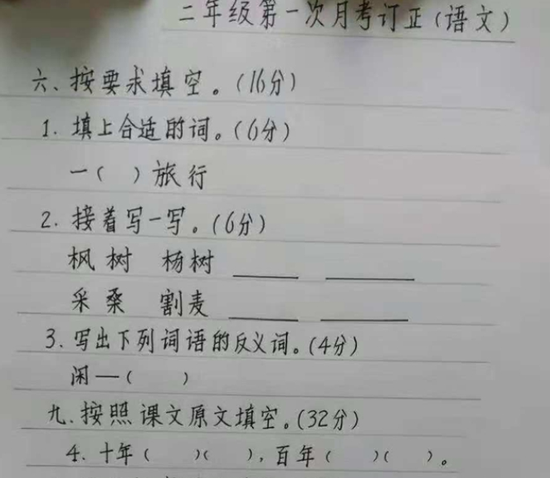 二年级第一次月考订正(语文)
六、按要求填空。(16分)
1. 填上合适的词。(6分)
一( )旅行
2. 接着写一写。(6分)
枫树 杨树 ____ ____
采桑 割麦 ____ ____
3. 写出下列词语的反义词。(4分)
闲—( )
九.按照课文原文填空。(32分)
4. 十年( )( ),百年( )( )。